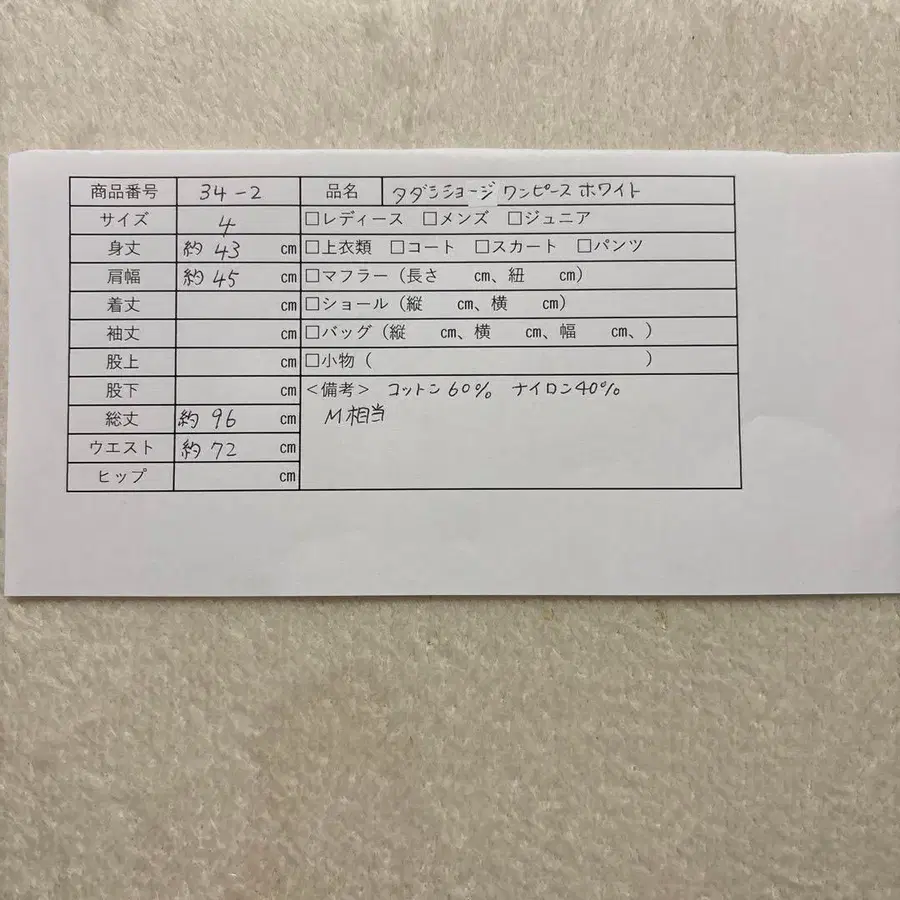 商品番号 34-2 品名 タダシショージ ワンピース ホワイト
サイズ 4 □レディース □メンズ □ジュニア
身丈 約43 cm □上衣類 □コート □スカート □パンツ
肩幅 約45 cm □マフラー（長さ cm、紐 cm）
着丈 cm □ショール（縦 cm、横 cm）
袖丈 cm □バッグ（縦 cm、横 cm、幅 cm、）
股上 cm □小物（ ）
股下 cm ＜備考＞ コットン60% ナイロン40%
総丈 約96 cm M相当
ウエスト 約72 cm
ヒップ cm